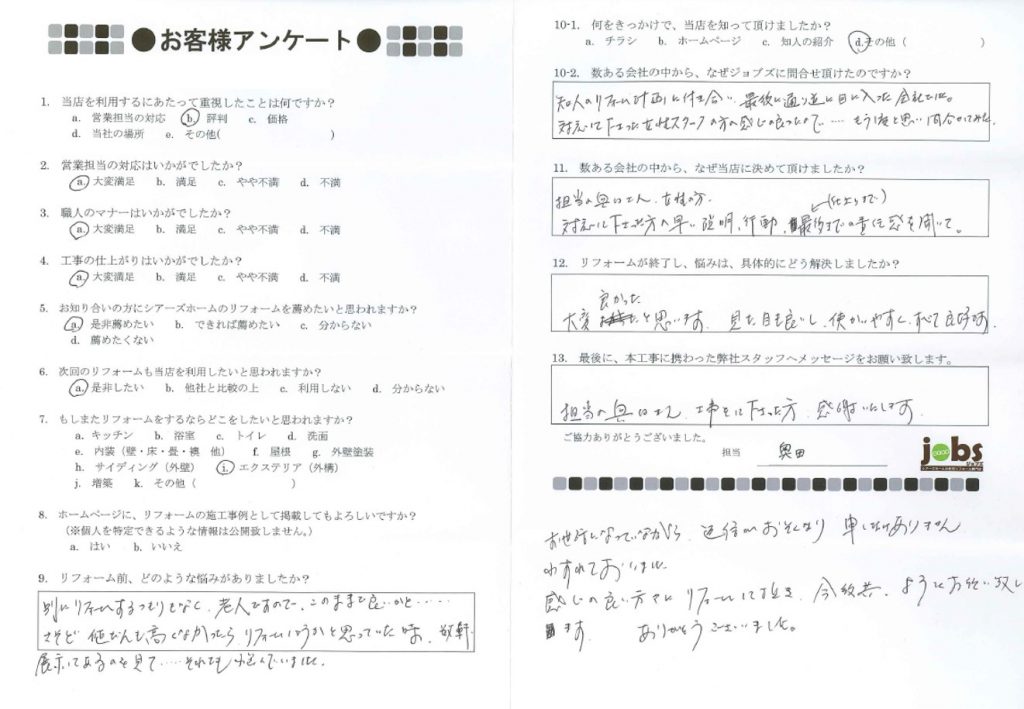 ●お客様アンケート●
1. 当店を利用するにあたって重視したことは何ですか？
a. 営業担当の対応 b. 評判 c. 価格
d. 当社の場所 e. その他( )
2. 営業担当の対応はいかがでしたか？
a. 大変満足 b. 満足 c. やや不満 d. 不満
3. 職人のマナーはいかがでしたか？
a. 大変満足 b. 満足 c. やや不満 d. 不満
4. 工事の仕上がりはいかがでしたか？
a. 大変満足 b. 満足 c. やや不満 d. 不満
5. お知り合いの方にシアーズホームのリフォームを薦めたいと思われますか？
a. 是非薦めたい b. できれば薦めたい c. 分からない
d. 薦めたくない
6. 次回のリフォームも当店を利用したいと思われますか？
a. 是非したい b. 他社と比較の上 c. 利用しない d. 分からない
7. もしまたリフォームをするならどこをしたいと思われますか？
a. キッチン b. 浴室 c. トイレ d. 洗面
e. 内装（壁・床・畳・襖 他） f. 屋根 g. 外壁塗装
h. サイディング（外壁） i. エクステリア（外構）
j. 増築 k. その他（ ）
8. ホームページに、リフォームの施工事例として掲載してもよろしいですか？
（※個人を特定できるような情報は公開致しません。）
a. はい b. いいえ
9. リフォーム前、どのような悩みがありましたか？
別にリフォームするつもりもなく、老人ですので、このままで良いかと……
さほど値だんも高くなかったらリフォームしようかと思っていた時、数軒
展示してあるのを見て……それでも悩んでいました。
10-1. 何をきっかけで、当店を知って頂けましたか？
a. チラシ b. ホームページ c. 知人の紹介 d. その他（ ）
10-2. 数ある会社の中から、なぜジョブズに問合せ頂けたのですか？
知人のリフォーム計画に付き合い、最後に通り道に目に入った会社でした。
対応して下さった女性スタッフの方の感じの良ったので…‥もう1度と思い問合わせてみた。
11. 数ある会社の中から、なぜ当店に決めて頂けましたか？
担当の奥田さん、女性の方、
対応して下さった方の早い説明、行動、最後までの責任感を聞いて。
(仕上りまで)
12. リフォームが終了し、悩みは、具体的にどう解決しましたか？
良かった
大変 と思います。見た目も良いし、使かいやすく、すべて良好です。
13. 最後に、本工事に携わった弊社スタッフへメッセージをお願い致します。
担当の奥田さん、工事をして下さった方、感謝いたします。
ご協力ありがとうございました。
担当 奥田
jobs
ジョブズ
お世話になっていながら、返信がおそくなり 申しわけありません
わすれておりました。
感じの良い方々に リフォームして頂き、今後共、よろしくお願い致し
ます。 ありがとうございました。